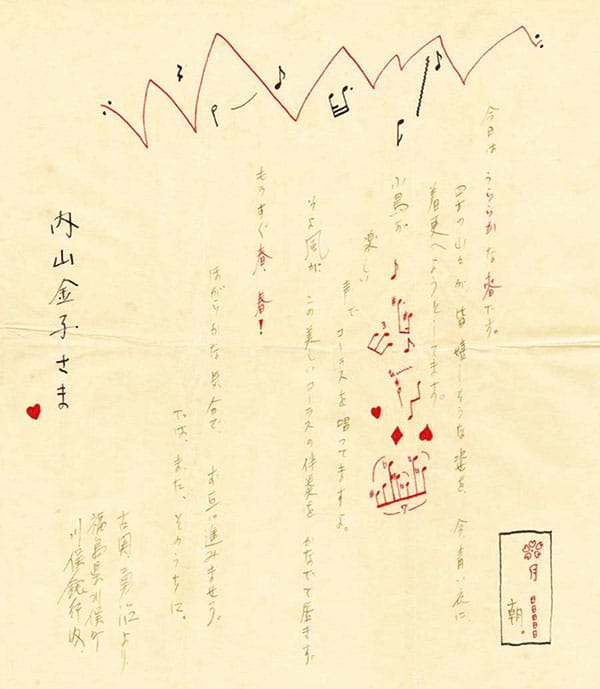 今日は うららかな 春です。
四方の山々が 皆 嬉しそうな姿を、今 青い衣に
着更へようとしてます。
小鳥が
楽しい
声で コーラスを唱ってますよ。
そよ風が この美しいコーラスの伴奏を かなでて居ます。
もうすぐ春、春!
ほがらかな気分で、お互に進みませう。
では、また、そのうちに。
月 日日日日日
朝。
古関勇治より
福島県川俣町
川俣銀行内
内山金子さま